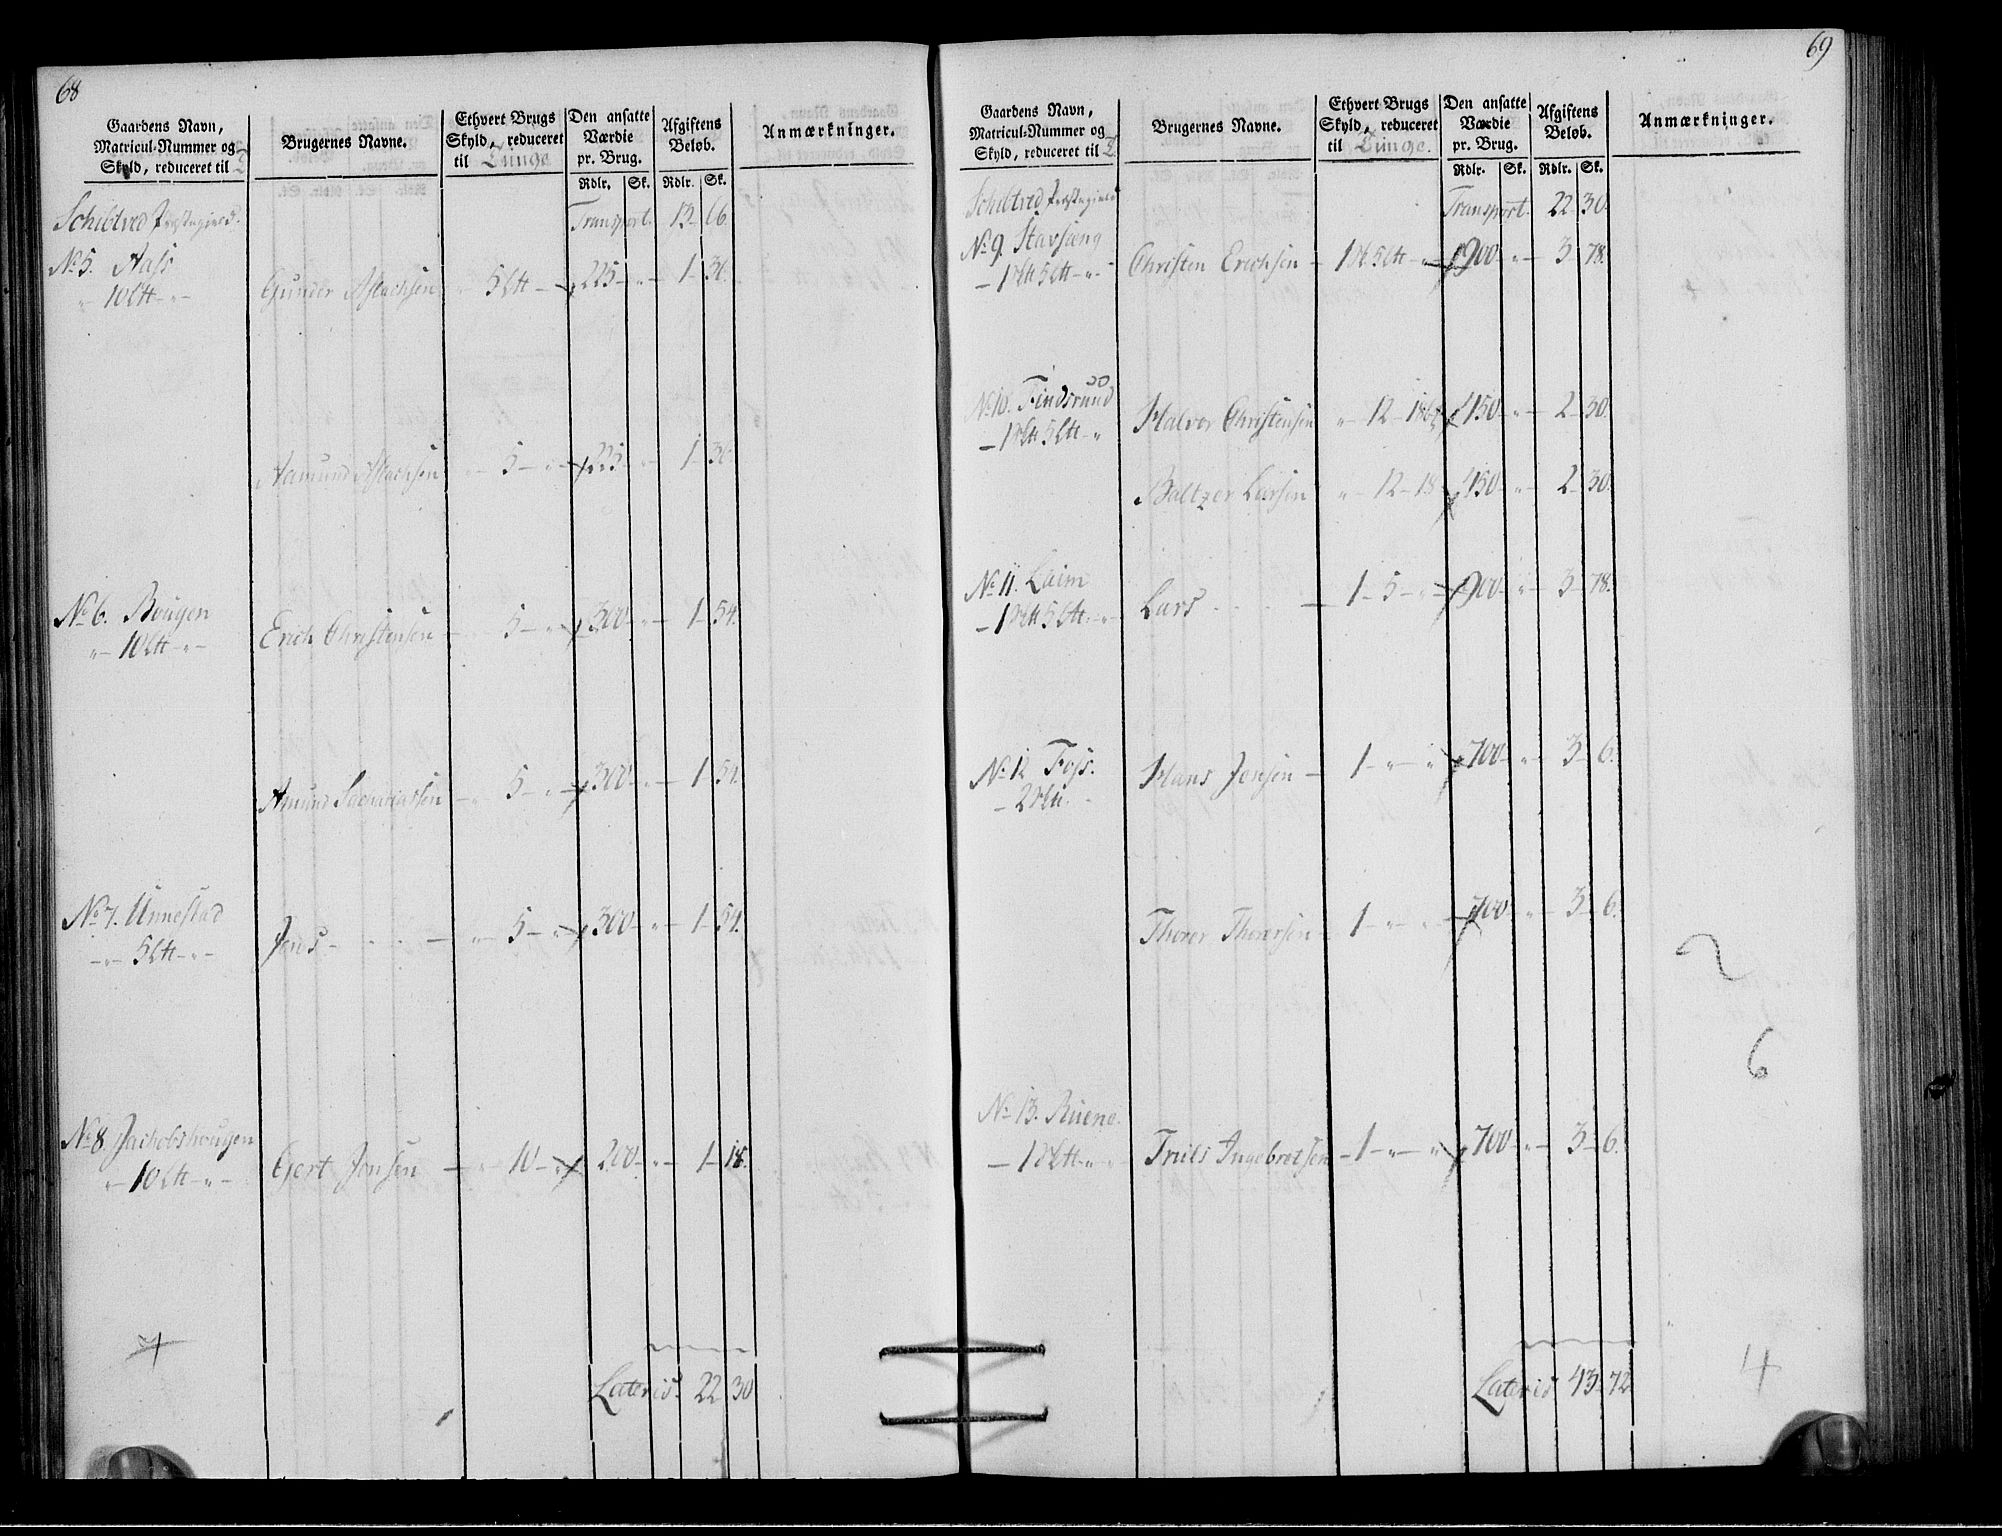 68
Gaardens Navn, Matricul-Nummer og Skyld, reduceret til
Brugernes Navne.
Ethvert Brugs Skyld, reduceret til Tünge
Den ansatte Værdie pr. Brug.
Afgiftens Beløb.
Anmærkninger.
Rdlr. Sk. Rdlr. Sk.
Schiltved Præstegield. Transport. 13 66.
No 5. Aass
" 10 Ltt " Gunder Aslachsen " 5 Ltt - 225 " 1 - 36
Aamund Aslachsen " 5 - " 225 " 1 - 36
No 6. Bougen
" 10 Ltt " Erich Christensen - " 5 - " 300 " 1 - 54.
Amund Zachariassen - " 5 - " 300 " 1 - 54.
No 7. Unnestad
" 5 Ltt - " Jens - " 5 - " 300 " 1 - 54.
No 8 Jachobshougen
" 10 Ltt - " Gert Jensen - " 10 - " 200 " 1 - 18.
Lateris. 22 30
69
Gaardens Navn, Matricul-Nummer og Skyld, reduceret til
Brugernes Navne.
Ethvert Brugs Skyld, reduceret til Tünge.
Den ansatte Værdie pr. Brug.
Afgiftens Beløb.
Anmærkninger.
Rdlr. Sk. Rdlr. Sk.
Schiltved Præstegield Transport. 22 30.
No 9. Stavseng
- 1 Sktt 5 Ltt - " Christen Erichsen - 1 Sk 5 Ltt " 900 " 3 78.
No 10. Findsrund
- 1 Sktt 5 Ltt - " Halvor Christensen " 12 - 18 450 " 2 - 30.
Baltzer Larsen " 12 - 18 450 " 2 - 30.
No 11. Laim
- 1 Sktt 5 Ltt - " Lars - 1 - 5 - " 900 " 3 - 78.
No 12 Foss.
- 2 Sktt. Hans Jensen - 1 - " " 700 " 3 - 6.
Thorer Thorersen - 1 - " " 700 " 3 - 6.
2
6
No 13. Ruene.
- 1 Sktt - " Truls Ingebretsen - 1 - " " 700 " 3 - 6.
4
Lateris 43 - 72